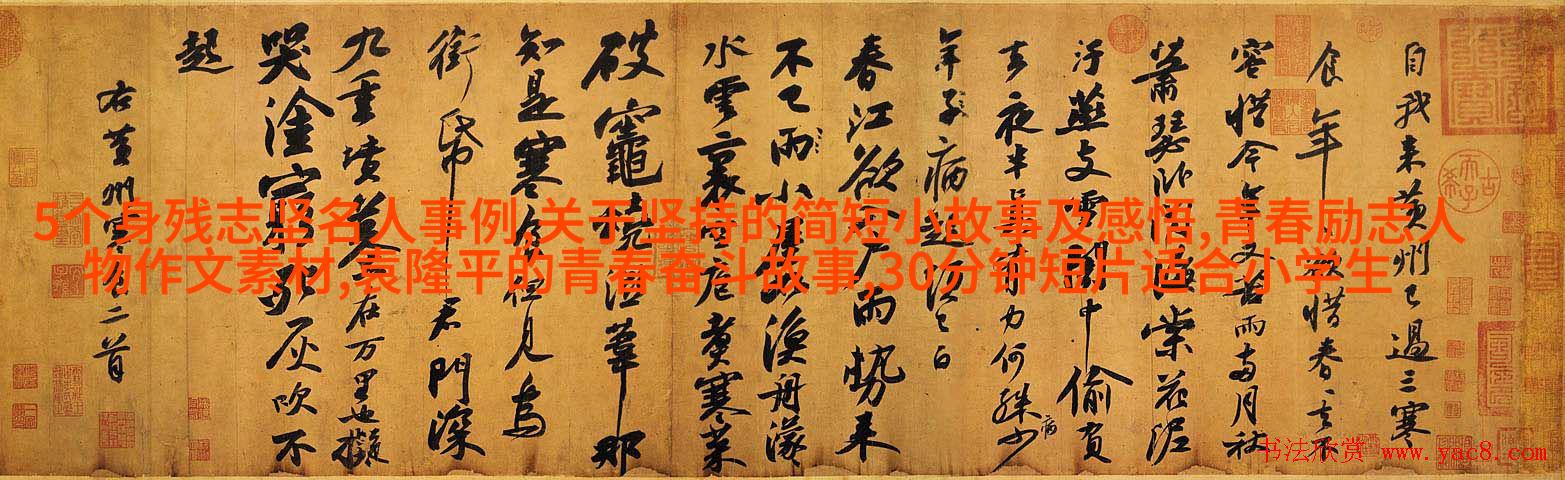 自我来黄州已過三寒
食年年欲惜春春去不
容惜今年又苦雨两月秋
蕭瑟卧聞海棠花泥
汙燕支雪闇中偷負
去夜半真有力何殊少
病
年子病起須已白
春江欲入户雨勢来
不已雨小屋如漁舟濛
水雲裏空庖煮寒菜
破竈燒濕葦那
知是寒食但見烏
銜帋君門深
九重墳墓在万里也擬
哭塗窮死灰吹不
起
右黄州寒食二首
5个身残志坚名人事例,关于坚持的简短小故事及感悟,青春励志人
物作文素材,袁隆平的青春奋斗故事,30分钟短片适合小学生
书法欣赏 www.yac8.com